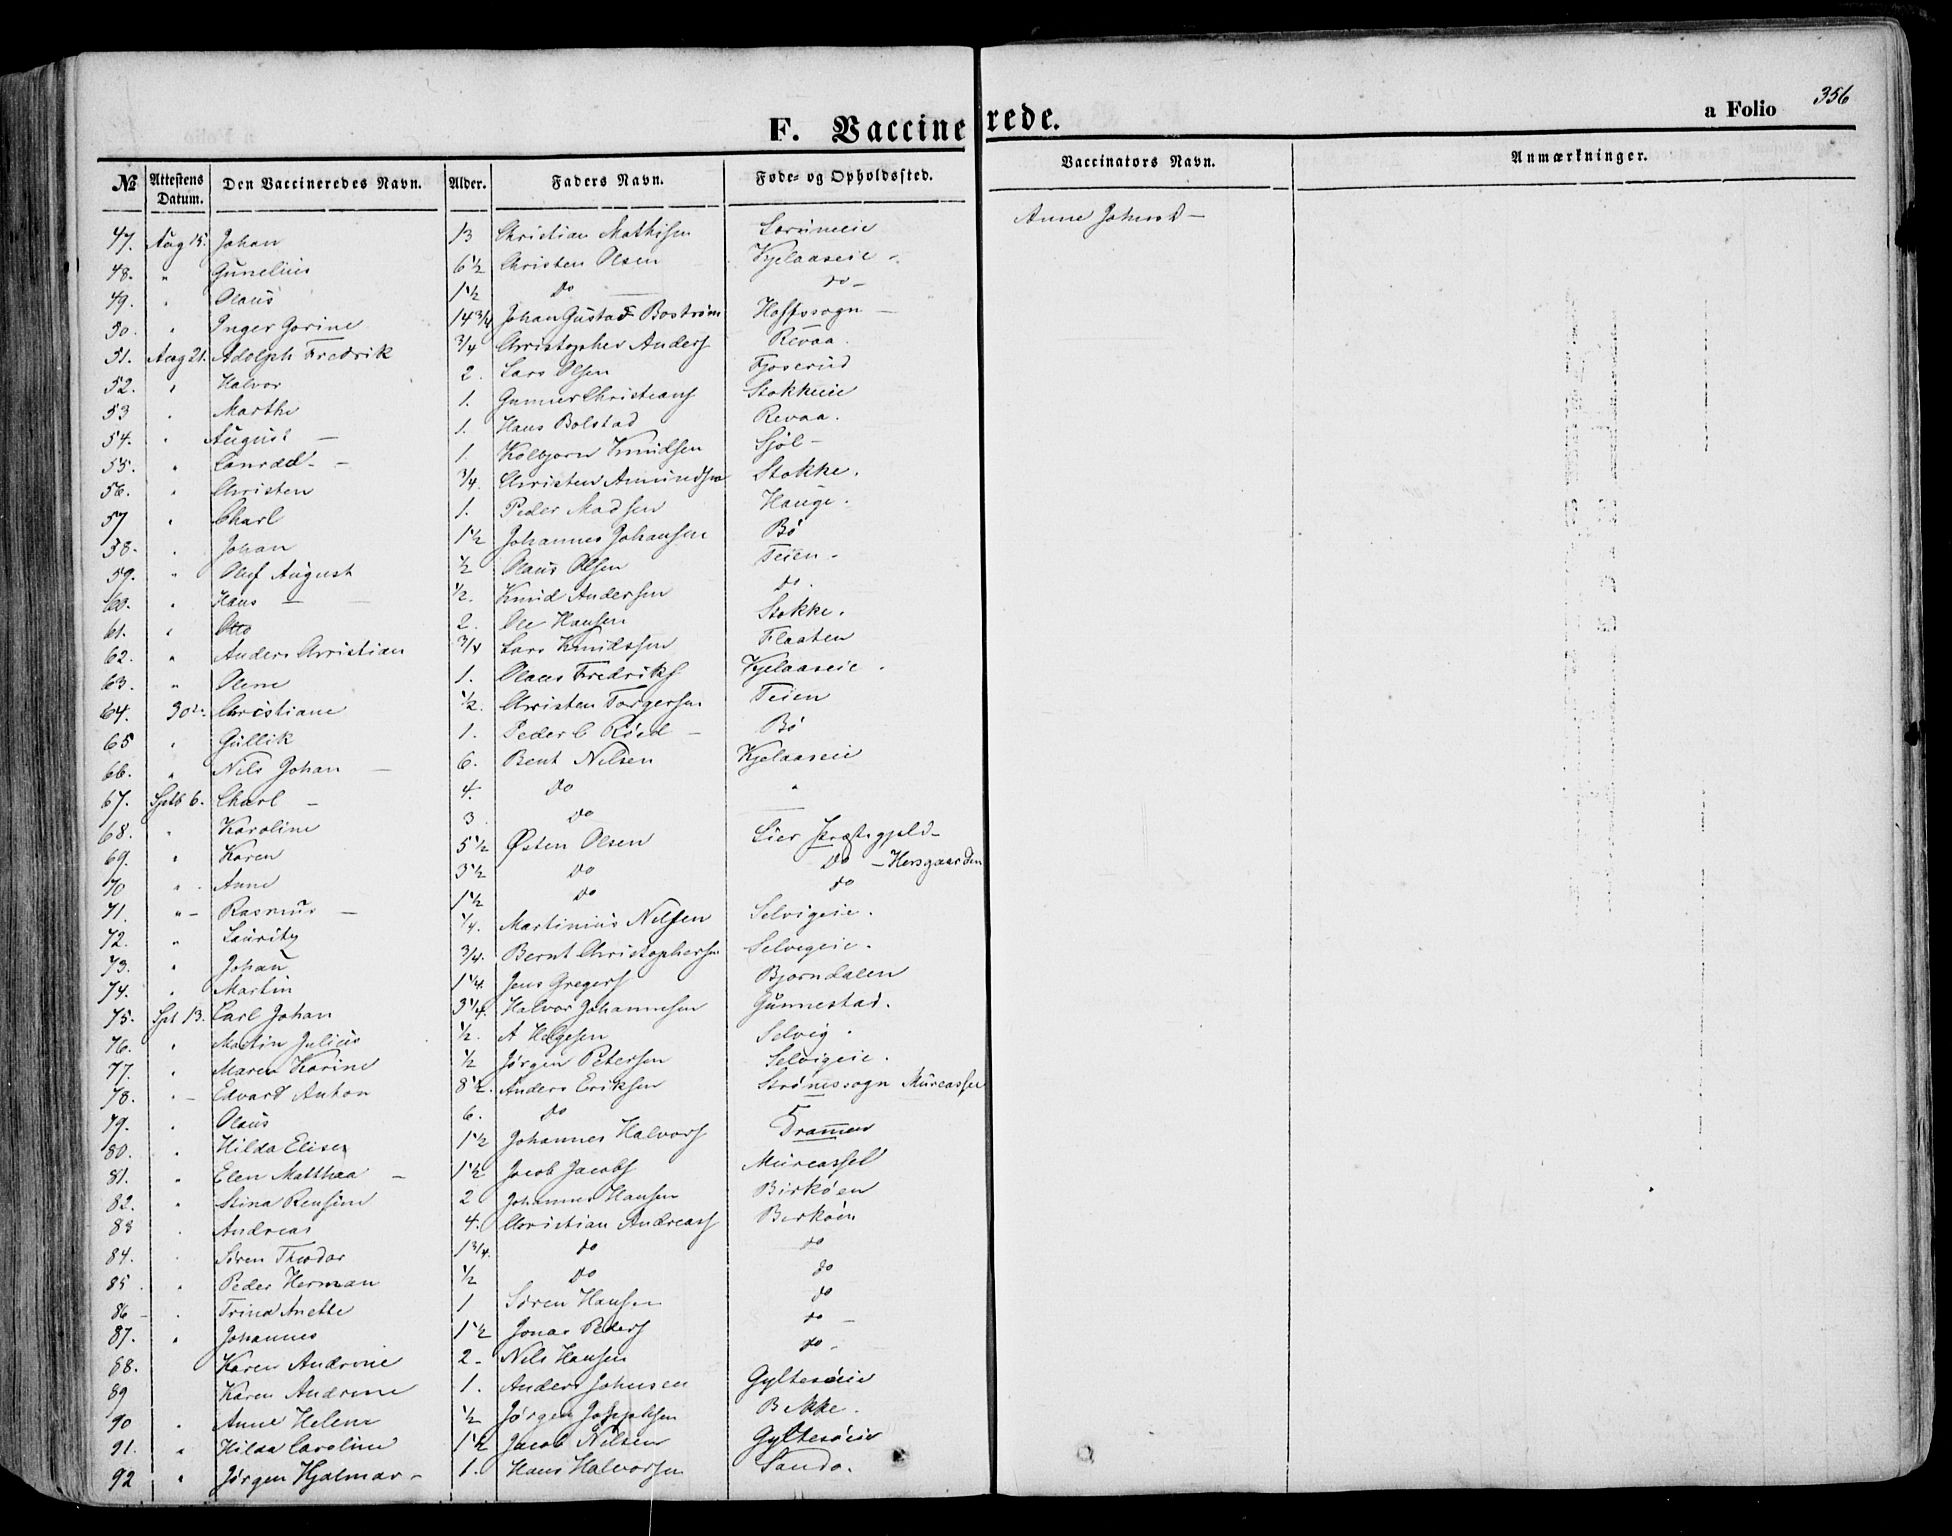 F. Vaccinerede.
a Folio 356
№ Attestens Datum. Den Vaccineredes Navn. Alder. Faders Navn. Føde- og Opholdssted. Vaccinators Navn. Anmærkninger.
47. Aug 15. Johan 13 Christian Mathisen Sorumeie Anne Johnsd
48. " Gunelius 6 1/2 Christen Olsen Kjelaaseie
49. " Olaus 1 1/2 do do
50. " Inger Gorine 14 3/4 Johan Gustaf Bostrøm Hoffssogn
51. Aug 21. Adolph Fredrik 3/4 Christopher Anders Revaa.
52. " Halvor 2. Lars Olsen Fjoserud
53 " Marthe 1. Gunner Christians Stokkeie
54. " August 1. Hans Bolstad Revaa.
55. " Conrad 1. Kolbjorn Knudsen Sjøl
56. " Christen 3/4. Christen Amundsen Stokke.
57 " Charl 1. Peder Madsen Hauge.
58. " Johan 1 1/2 Johannes Johansen Bö
59. " Oluf August 1/2 Olaus Olsen Teien
60. " Hans 1/2. Knud Andersen do.
61. " Otto 2. Ole Hansen Stokke.
62. " Anders Christian 3/4 Lars Knudssen Flaaten
63. " Olene 1. Olaus Fredriks Kjelaaseie
64. 30. Christiane 1/2. Christen Torgersen Teien
65 " Gullik 1. Peder C Röed Bö
66. " Nils Johan 6. Bent Nilsen Kjelaaseie
67. Sptb 6. Charl 4. do "
68. " Karoline 3 do
69. " Karen 5 1/2 Østen Olsen Lier Præstegjeld
70 " Anne 3 1/2 do do Horsgaarden
71. " Rasmus 1 1/2 do do
72. " Lauritz 1/4. Martinius Nilsen Selvigeie.
73. " Johan 3/4. Bernt Christophersen Selvigeie.
74. " Martin 1 1/4. Jens Gregers Bjorndalen
75. Spt 13. Carl Johan 3 1/4. Halvor Johannesen Gunnestad.
76. " Martin Julius 1/2. A Helgesen Selvig.
77. " Maren Karine 1/2 Jørgen Petersen Selvigeie.
78. " Edvard Anton 8 1/2. Anders Eriksen Strømssogn
79. " Olaus 6. do
80. " Hilda Elisen 1 1/2 Johannes Halvors Dramen
81. " Elen Matthæa 1 1/2 Jacob Jacobs
82. " Stina 2 Johannes Hansen Birköen
83 " Andreas 4. Christian Andreass Berköen
84. " Sören Theodor 1 3/4. do do
85 " Peder Herman 1/2 do do
86 " Trina Anette 1 Sören Hansen do
87. " Johannes 1 1/2 Jonas Peders do
88. Karen Andrine 2 Nils Hansen do
89 Karen Andrine 1. Anders Johnsen Gyltesöeie
90 " Anne Helene 1/2 Jørgen Josephsen Bekke.
91. " Hilda Caroline 1 1/2 Jacob Nilsen Gyltesöeie
92 " Jørgen Hjalmar 1. Hans Halvorsen Sando.